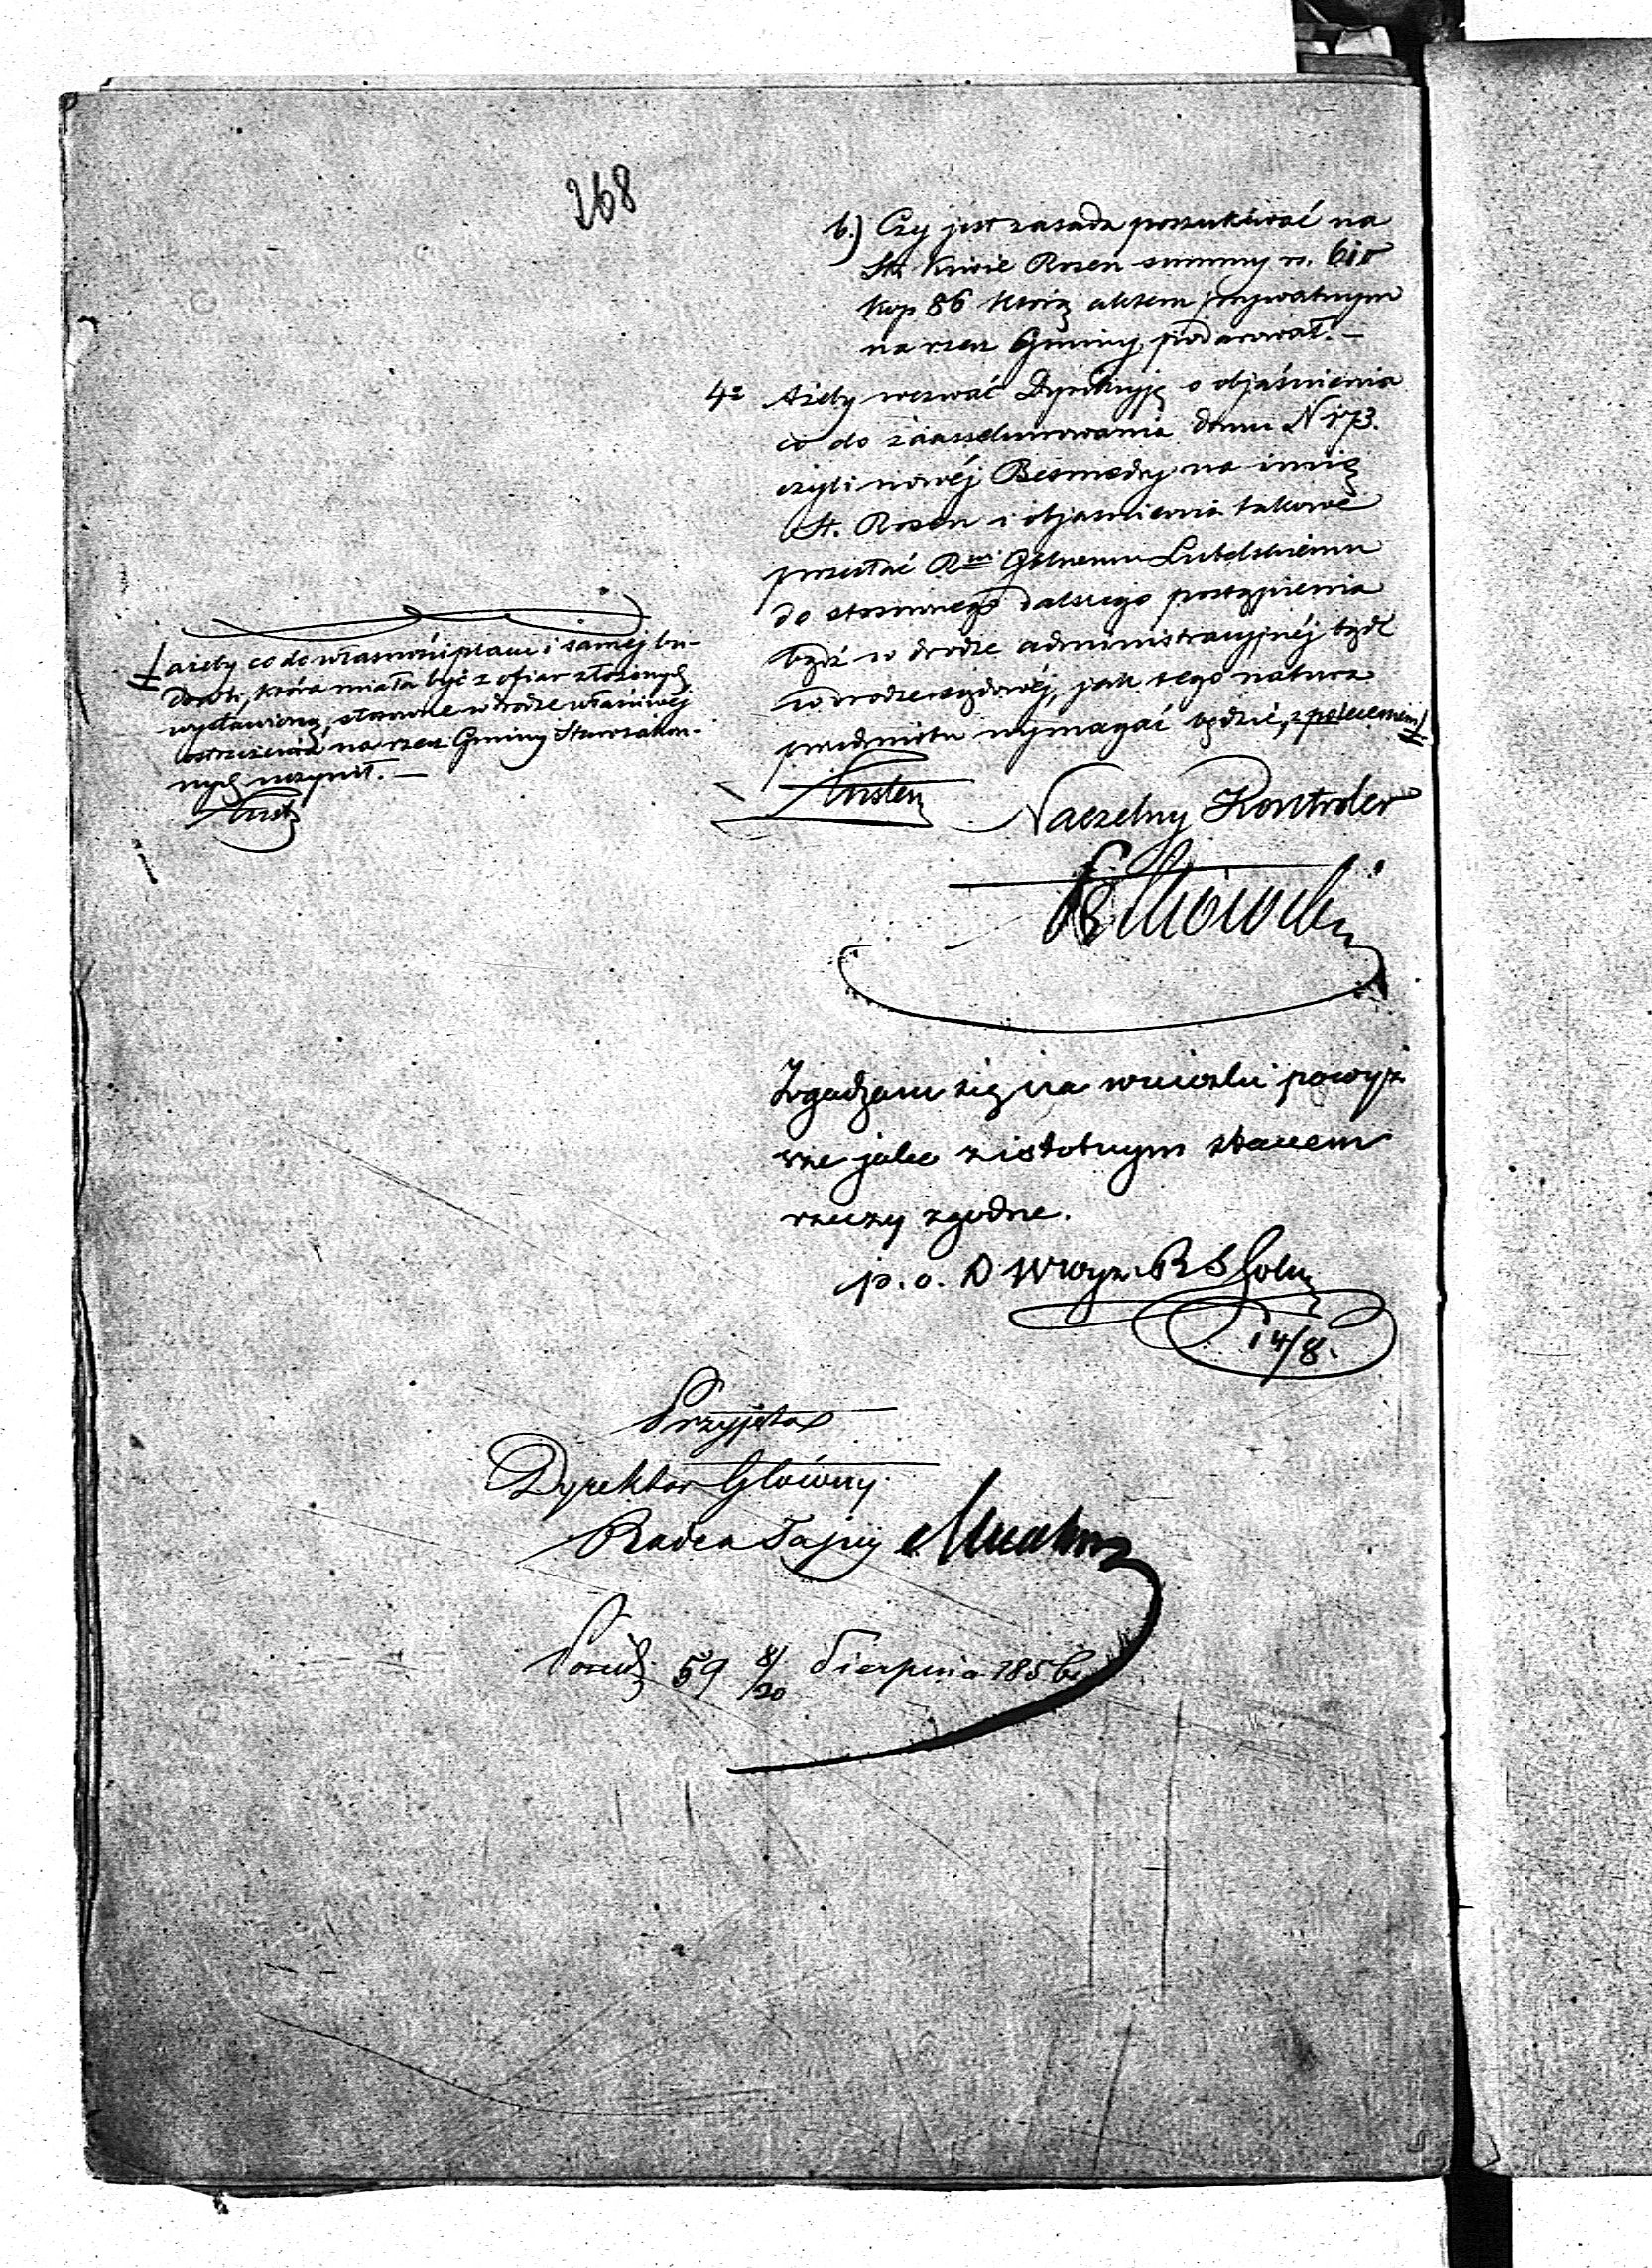 268
b.) Czy jest zasada poszukiwać na
St. Kiwie Rosen summy rs. 610
kop 86 którą aktem prywatnym
na rzecz Gminy podarował. —
4º Ażeby wezwać Dyrekcyję o objaśnienia
co do zaassekurowania domu N 173.
czyli nowéj Besmedry na imię
St. Rosen i objaśnienia takowe
przesłać Rwi Gubernu Lubelskiemu
do stosownego dalszego postąpienia
bądź w drodze administracyjnéj bądź
w drodze sądowéj, jak tego natura
przedmiotu wymagać będzie, z poleceniem
ażeby co do własności placu i saméj bu-
dowli, która miała być z ofiar złożonych
wystawioną, stosowne w drodze właściwéj
ostrzeżenia na rzecz Gminy Starozakon-
nych uczynił. —
Naczelny Kontroler
Zgadzam się na wnioski powyż
sze jako z istotnym stanem
rzeczy zgodne.
p. o. D Wyz. R S
14/8.
Przyjęta
Dyrektor Główny
Radca Tajny
Posiedz. 59 8/20 Sierpnia 1856